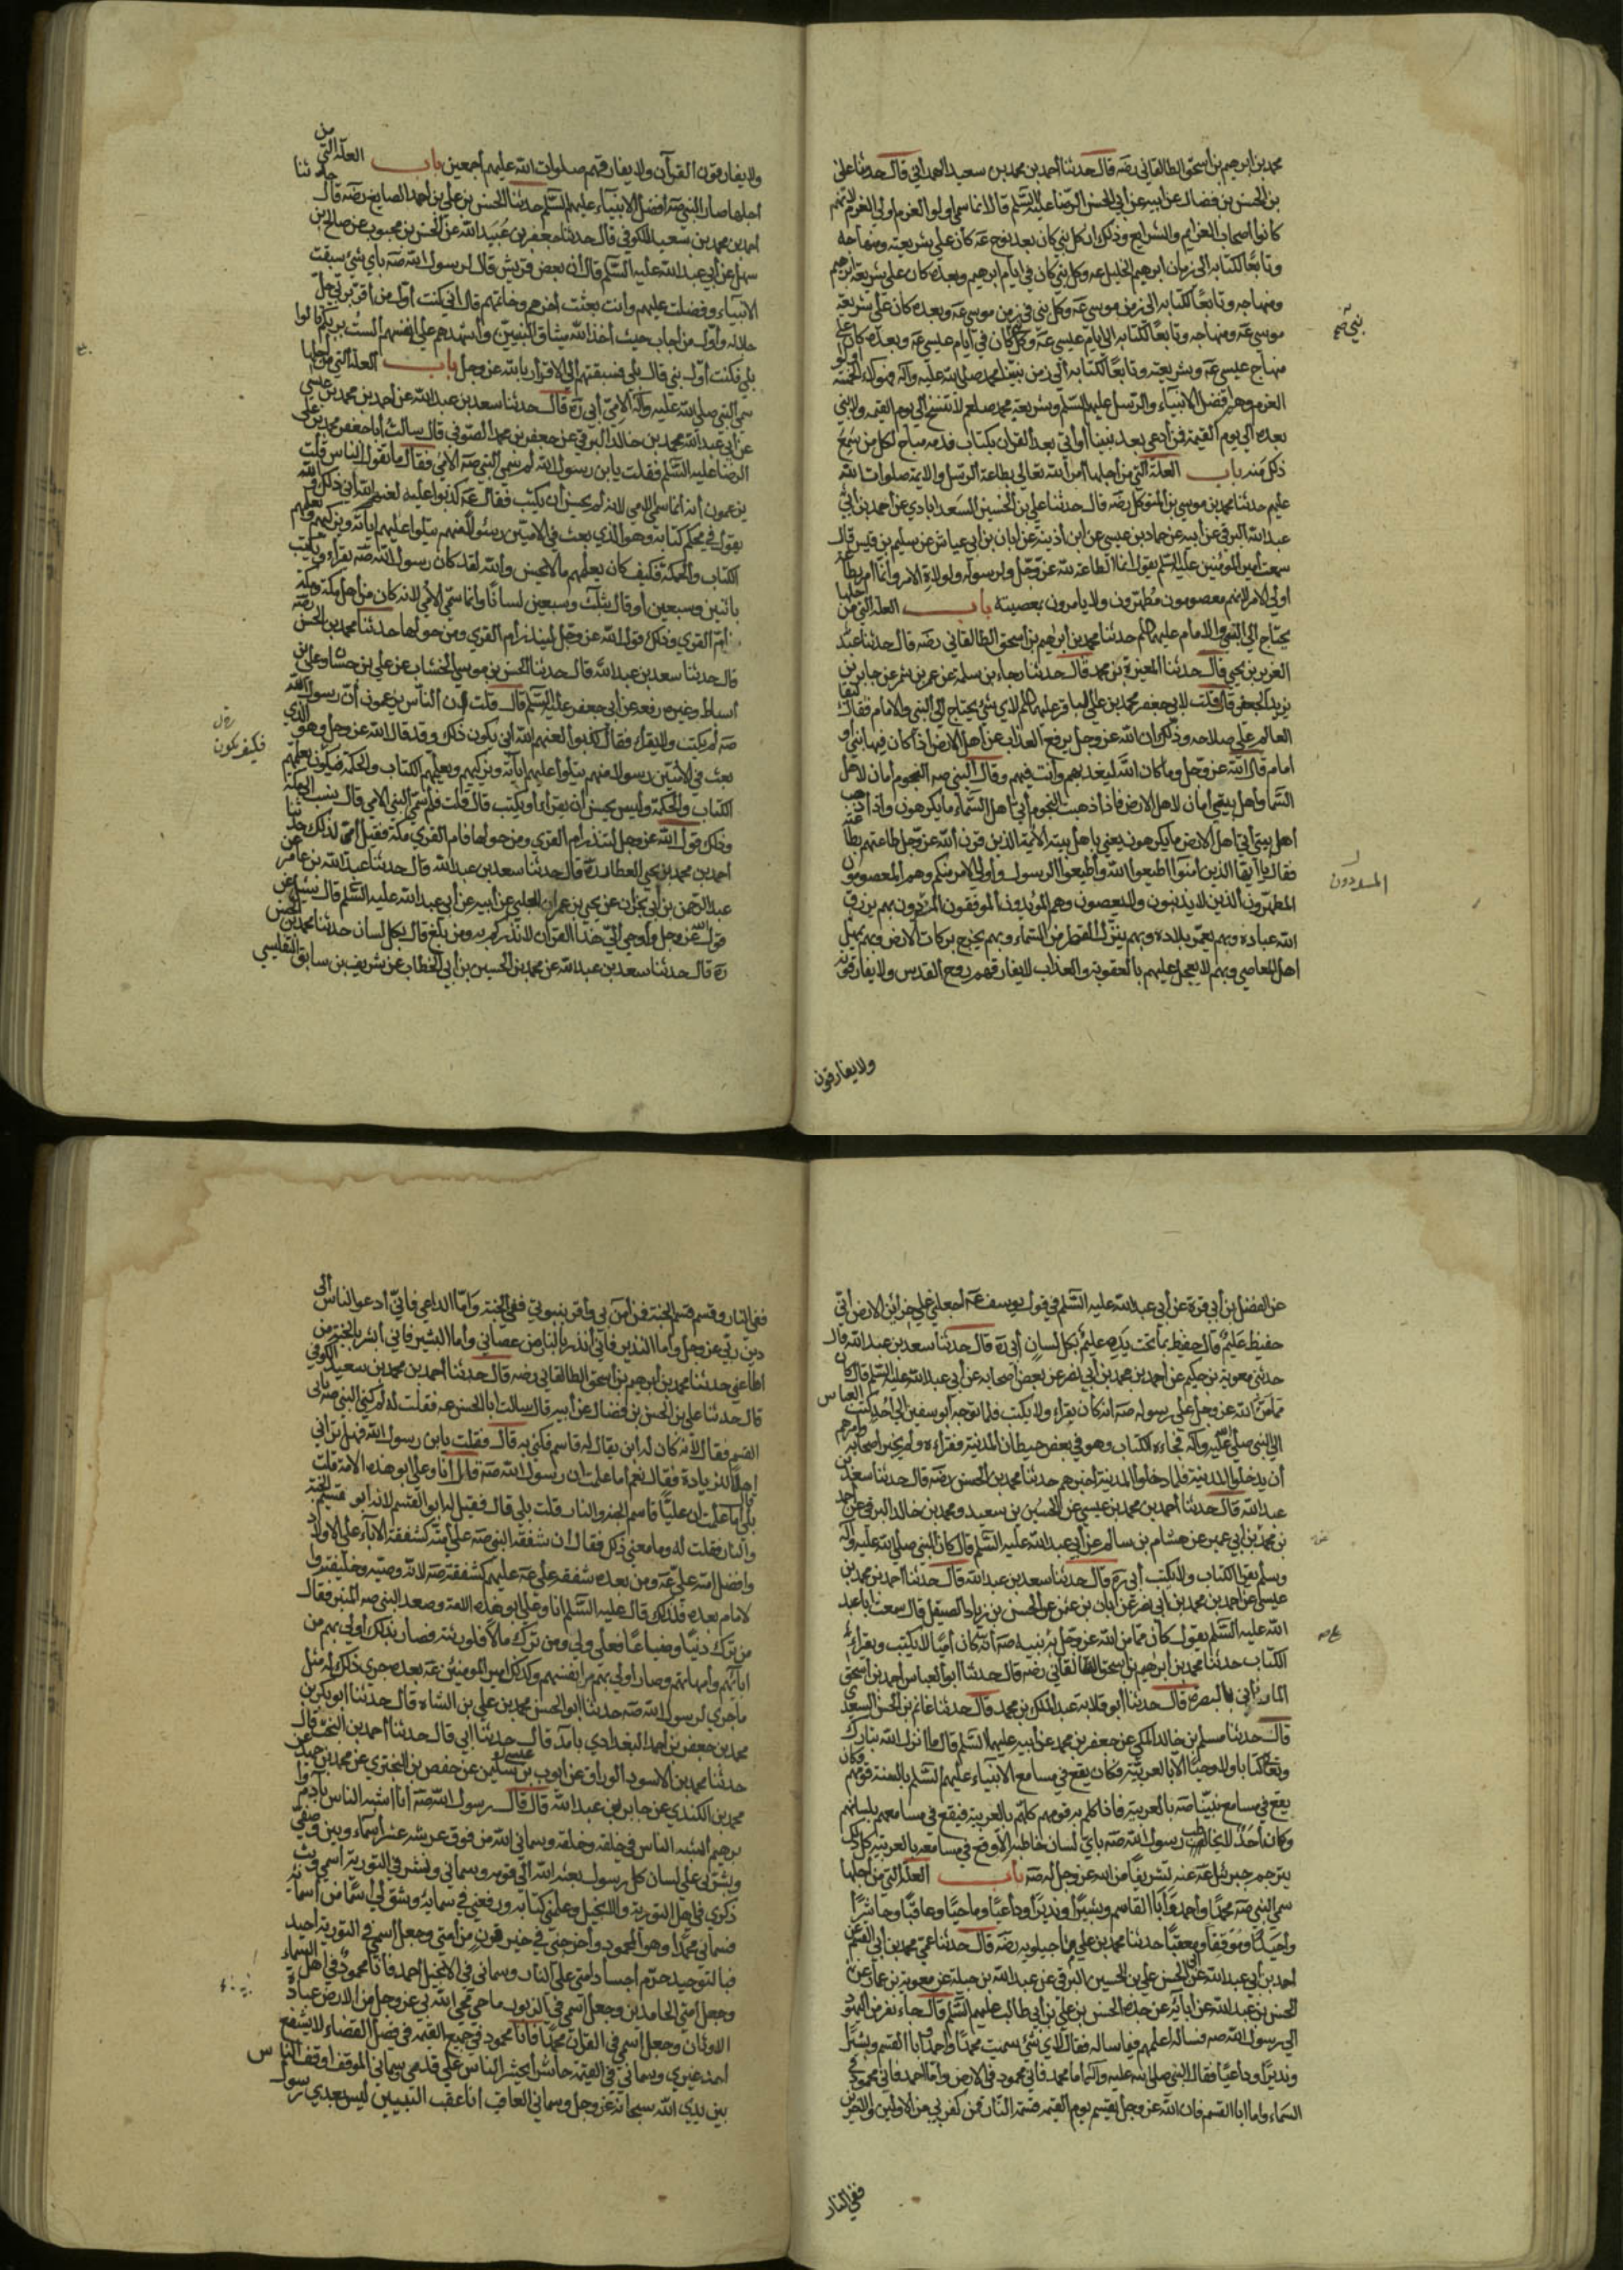 محمد بن ابرهيم بن اسحق الطالقاني رضه قال حدثنا أحمد بن محمد بن سعيد الهمداني قال حدثنا علي
بن الحسن بن فضال عن ابيه عن ابي الحسن الرضا عليه السلم قال انما سمي اولوا العزم اولي العزم لانهم
كانوا أصحاب العزايم والشرايع وذلك ان كل نبي كان بعد نوح عه كان علي شريعته ومنهاجه
وتابعًا لكتابه الي زمان ابرهيم الخليل عه وكل نبي كان في ايام ابرهيم وبعده كان علي شريعة ابرهيم
ومنهاجه وتابعًا لكتابه الي زمن موسي عه وكل نبي في زمن موسي عه وبعده كان علي شريعة
موسي عه ومنهاجه وتابعًا لكتابه الي ايام عيسي عه وكل كان في ايام عيسي عه وبعده كان علي
نبي صح
منهاج عيسي عه وشريعته وتابعًا لكتابه الي زمن نبينا محمد صلي الله عليه وآله فهولاء الخمسة اولو
العزم وهم افضل الانبياء والرسل عليهم السلم وشريعة محمد صلعم لا تنسخ الي يوم القيمة ولا نبي
بعده الي يوم القيمة فمن ادعي بعد نبينا أو أتي بعد القران بكتاب فدمه مباح لكل من سمع
ذلك منه باب العلة التي من أجلها أمر الله تعالي بطاعة الرسل والايمة صلوات الله
عليهم حدثنا محمد بن موسي بن المتوكل رضه قال حدثنا علي بن الحسين السعدابادي عن أحمد بن أبي
عبد الله البرقي عن أبيه عن حماد بن عيسي عن ابن أذينة عن ابان بن ابي عياش عن سليم بن قيس قال
سمعت أمير المؤمنين عليه السلم يقول انما الطاعة لله عز وجل ولرسوله ولولاة الامر وانما أمر بطاعة
أولي الامر لانهم معصومون مطهرون ولا يامرون بمعصيته باب العلة التي من اجلها
يحتاج الي النبي والامام عليهم السلم حدثنا محمد بن أبرهيم بن اسحق الطالقاني رضه قال حدثنا عبد
العزيز بن يحيي قال حدثنا المغيرة بن محمد قال حدثنا رجاء بن سلمة عن عمرو بن شمر عن جابر بن
يزيد الجعفي قال قلت لابي جعفر محمد بن علي الباقر عليهم السلم لاي شئ يحتاج الي النبي والامام فقال لبقا
العالم علي صلاحه وذلك ان الله عز وجل يرفع العذاب عن اهل الارض اذا كان فيها نبي او
امام قال الله عز وجل وما كان الله ليعذبهم وأنت فيهم وقال النبي صه النجوم أمان لاهل
السما واهل بيتي امان لاهل الارض فاذا ذهبت النجوم أتي أهل السماء ما يكرهون واذا ذهب
أهل بيتي أتي اهل الارض ما يكرهون يعني باهل بيته الايمة الذين قرن الله عز وجل طاعتهم بطاعته
فقال يا أيها الذين آمنوا اطيعوا الله وأطيعوا الرسول واولي الامر منكم وهم المعصومون
المطهرون الذين لا يذنبون ولا يعصون وهم المؤيدون الموفقون المسددون بهم يرزق
المسددون
الله عباده وبهم يعمر بلاده وبهم ينزل القطر من السماء وبهم يخرج بركات الارض وبهم يمهل
اهل المعاصي وبهم لا يعجل عليهم بالعقوبة والعذاب لا يفارقهم روح القدس ولا يفارقونه
ولا يفارقون
ولا يفارقون القرآن ولا يفارقهم صلوات الله عليهم أجمعين باب العلة التي من
اجلها صار النبي صه أفضل الانبياء عليهم السلم حدثنا الحسن بن علي بن أحمد الصايغ رضه قال حدثنا
احمد بن محمد بن سعيد الكوفي قال حدثنا جعفر بن عبيد الله عن الحسن بن محبوب عن صالح بن
سهل عن أبي عبد الله عليه السلم قال أن بعض قريش قال لرسول الله صه باي شئ سبقت
الانبياء وفضلت عليهم وأنت بعثت آخرهم وخاتمهم قال اني كنت اول من أقر بربي جل
جلاله وأول من أجاب حيث أخذ الله ميثاق النبيين واشهدهم علي انفسهم ألست بربكم قالوا
بلي فكنت أول نبي قال بلي فسبقتهم الي الاقرار بالله عز وجل باب العلة التي من اجلها
سمي النبي صلي الله عليه وآله الامي أبي ره قال حدثنا سعد بن عبد الله عن أحمد بن محمد بن عيسي
عن ابي عبد الله محمد بن خالد البرقي عن جعفر بن محمد الصوفي قال سالت أبا جعفر محمد بن علي
الرضا عليه السلم فقلت يا بن رسول الله لم سمي النبي صه الامي فقال ما يقول الناس قلت
يزعمون أنه انما سمي الامي لانه لم يحسن أن يكتب فقال عه كذبوا عليهم لعنهم الله أني ذلك والله
يقول في محكم كتابه وهو الذي بعث في الاميين رسولا منهم يتلوا عليهم آياته ويزكيهم ويعلمهم
الكتاب والحكمة فكيف كان يعلمهم ما لا يحسن والله لقد كان رسول الله صه يقراء ويكتب
باثنين وسبعين او قال بثلث وسبعين لسانًا وانما سمي الامي لانه كان من أهل مكة ومكة
أم القري وذلك قول الله عز وجل لينذر أم القري ومن حولها حدثنا محمد بن الحسن رضه
قال حدثنا سعد بن عبد الله قال حدثنا الحسن بن موسي الخشاب عن علي بن حسان وعلي بن
أسباط وغيره رفعه عن ابي جعفر عليه السلم قال قلت ان الناس يزعمون أن رسول الله
صه لم يكتب ولا يقراء فقال كذبوا لعنهم الله أني يكون ذلك وقد قال الله عز وجل وهو الذي
بعث في الاميين رسولا منهم يتلوا عليهم اياته ويزكيهم ويعلمهم الكتاب والحكمة فيكون يعلمهم
فكيف يكون
الكتاب والحكمة وليس يحسن أن يقراء أو يكتب قال قلت فلم سمي النبي الامي قال نسب الي مكة
وذلك قول الله عز وجل لتنذر ام القري ومن حولها فام القري مكة فقيل أمي لذلك حدثنا
احمد بن محمد بن يحيي العطار ره قال حدثنا سعد بن عبد الله قال حدثنا عبد الله بن عامر عن
عبد الرحمن بن أبي نجران عن يحيي بن عمران الحلبي عن أبيه عن أبي عبد الله عليه السلم قال سئل عن
قول الله عز وجل وأوحي الي هذا القران لانذركم به ومن بلغ قال بكل لسان حدثنا محمد بن الحسن
ره قال حدثنا سعد بن عبد الله عن محمد بن الحسين بن أبي الخطاب عن شريف بن سابق التفليسي
عن الفضل بن أبي قرة عن أبي عبد الله عليه السلم في قول يوسف عه أجعلني علي خزاين الارض اني
حفيظ عليم قال حفيظ بما تحت يدي عليم بكل لسان أبي ره قال حدثنا سعد بن عبد الله قال
حدثني معوية بن حكيم عن احمد بن محمد بن أبي نصر عن بعض أصحابه عن أبي عبد الله عليه السلم قال كان
مما من الله عز وجل علي رسوله صه أنه كان يقراء ولا يكتب فلما توجه أبو سفين الي أحد كتب العباس
الي النبي صلي الله عليه وآله فجاءه الكتاب وهو في بعض حيطان المدينة فقراءه ولم يخبر اصحابه وأمرهم
أن يدخلوا المدينة فلما دخلوا المدينة اخبرهم حدثنا محمد بن الحسن رضه قال حدثنا سعد بن
عبد الله قال حدثنا أحمد بن محمد بن عيسي عن الحسين بن سعيد ومحمد بن خالد البرقي عن أحمد
بن محمد بن ابي عمير عن هشام بن سالم عن أبي عبد الله عليه السلم قال كان النبي صلي الله عليه وآله
وسلم يقرا الكتاب ولا يكتب أبي ره قال حدثنا سعد بن عبد الله قال حدثنا احمد بن محمد بن
عيسي عن احمد بن محمد بن أبي نصر عن ابان بن عثمن عن الحسن بن زياد الصيقل قال سمعت ابا عبد
الله عليه السلم يقول كان مما من الله عز وجل به نبيه صه أنه كان أميًا لا يكتب ويقراء
الكتاب حدثنا محمد بن ابرهيم بن اسحق الطالقاني رضه قال حدثنا ابو العباس احمد بن اسحق
بالبصرة قال حدثنا ابو قلابة عبد الملك بن محمد قال حدثنا غانم بن الحسن السعدي
قال حدثنا مسلم بن خالد المكي عن جعفر بن محمد عن ابيه عليهما السلم قال ما انزل الله تبارك
وتعا كتابا ولا وحيا الا بالعربية فكان يقع في مسامع الانبياء عليهم السلم بالسنة قومهم وكان
يقع في مسامع نبينا صه بالعربية فاذا كلم به قومه كلمهم بالعربية فيقع في مسامعهم بلسانهم
وكان أحد لا يخاطب رسول الله صه باي لسان خاطبه الا وقع في مسامعه بالعربية كل ذلك
يترجم جبرئيل عه عنه تشريفًا من الله عز وجل له صه باب العلة التي من أجلها
سمي النبي صه محمدًا وأحمد وأبا القاسم وبشيرًا ونذيرًا وداعيًا وماحيًا وعاقبًا وحاشرًا
وأحيد وموقفا ومعقبًا حدثنا محمد بن علي ماجيلويه رضه قال حدثنا عمي محمد بن ابي القسم عن
أحمد بن أبي عبد الله عن أبي الحسن علي بن الحسين البرقي عن عبد الله بن جبلة عن معوية بن عمار عن
الحسن بن عبد الله عن ابايه عن جده الحسن بن علي بن ابي طالب عليهم السلم قال جاء نفر من اليهود
الي رسول الله صه فساله اعلمهم فيما ساله فقال لاي شئ سميت محمدًا واحمد وأبا القسم وبشيرًا
ونذيرًا وداعيًا فقال النبي صلي الله عليه وآله اما محمد فاني محمود في الارض واما احمد فاني محمود في
السماء واما ابا القسم فان الله عز وجل يقسم يوم القيمة قسمة النار فمن كفر بي من الاولين والاخرين
ففي النار
ففي النار وقسم قسم الجنة فمن آمن بي وأقر بنبوتي ففي الجنة واما الداعي فاني أدعوا الناس الي
دين ربي عز وجل واما النذير فاني أنذر بالنار من عصاني واما البشير فاني ابشر بالجنة من
اطاعني حدثنا محمد بن أبرهيم بن أسحق الطالقاني رضه قال حدثنا أحمد بن محمد بن سعيد الكوفي
قال حدثنا علي بن الحسن بن فضال عن أبيه قال سالت ابا الحسن عه فقلت له لم كني النبي صه بابي
القسم فقال لانه كان له ابن يقال له قاسم فكني به قال فقلت يا بن رسول الله فهل تراني
اهلا للزيادة فقال نعم أما علمت ان رسول الله صه قال أنا وعلي ابو هذه الامة قلت
بلي قال أما علمت ان عليًا قاسم الجنة والنار قلت بلي قال فقيل له ابو القسم لانه ابو قسيم الجنة
والنار فقلت له وما معني ذلك فقال ان شفقة النبي صه علي أمته كشفقة الاباء علي الاولاد
وافضل امته علي عه ومن بعده شفقة علي عه عليهم كشفقته صه لانه وصيه وخليفته وا
لامام بعده فلذلك قال عليه السلم انا وعلي ابو هذه الامة وصعد النبي صه المنبر فقال
من ترك دينًا وضياعًا فعلي والي ومن ترك مالا فلورثته فصار بذلك اولي بهم من
ابائهم وامهاتهم وصار اولي بهم من انفسهم وكذلك امير المومنين عه بعده جري ذلك له مثل
ما جري لرسول الله صه حدثنا ابو الحسن محمد بن علي بن الشاه قال حدثنا ابو بكر بن
محمد بن جعفر بن احمد البغدادي بآمد قال حدثنا ابي قال حدثنا أحمد بن السخت قال
حدثنا محمد بن الاسود الوراق عن ايوب بن سليمن عن حفص بن البختري عن محمد بن حميد عن
محمد بن الكندي عن جابر بن عبد الله قال قال رسول الله صه أنا اشبه الناس بآدم وا
برهيم أشبه الناس بي خلقه وخلقه وسماني الله من فوق عرشه عشرة أسماء وبين وصفي
وبشر بي علي لسان كل رسول بعثه الله الي قومه وسماني ونشر في التورية اسمي وبث
ذكري في أهل التورية والانجيل وعلمني كتابه ورفعني في سمائه وشق لي اسمًا من أسمائه
فسماني محمدًا وهو المحمود وأخرجني في خير قرن من أمتي وجعل اسمي في التورية احيد
فبالتوحيد حرم أجساد امتي علي النار وسماني في الانجيل أحمد فانا محمود في اهل السماء
وجعل أمتي الحامدين وجعل اسمي في الزبور ماحي محي الله بي عز وجل من الارض عبادة
الاوثان وجعل اسمي في القران محمدًا فانا محمود في جميع القيمة في فصل القضاء لا يشفع
احد غيري وسماني في القيمة حاشر يحشر الناس علي قدمي وسماني الموقف اوقف الناس
بين يدي الله سبحانه عز وجل وسماني العاقب انا عقب النبيين ليس بعدي رسول